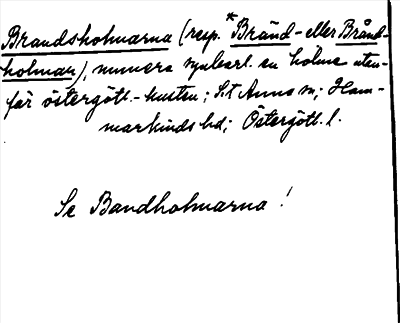 Brandsholmarna (resp. *Bränd- eller Bränd-
holman), numera synbarl. en holme utan-
för östergötl.-kusten; S:t Anna sn; Ham-
markinds hd; Östergötl. l.
Se Bandholmarna!